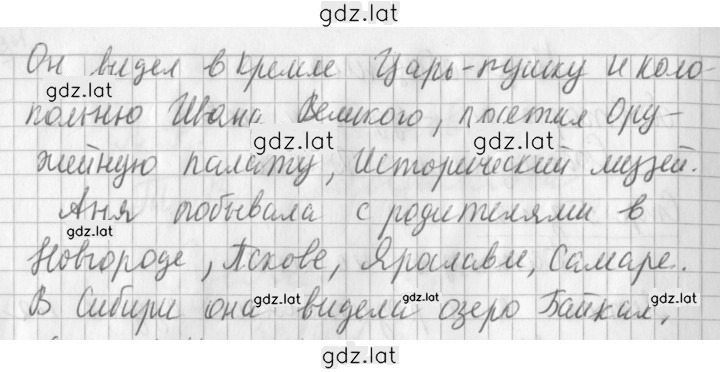 gdz.lat
Он видел в Кремле Царь-пушку и коло-
gdz.lat
польню Ивана Великого, посетил Ору-
gdz.lat gdz.lat
жейную палату, Исторический музей.
Аня побывала с родителями в
gdz.lat
Новгороде, Пскове, Ярославле, Самаре.
В Сибири она gdz.lat видела gdz.lat озеро Байкал, gdz.lat
gdz.lat